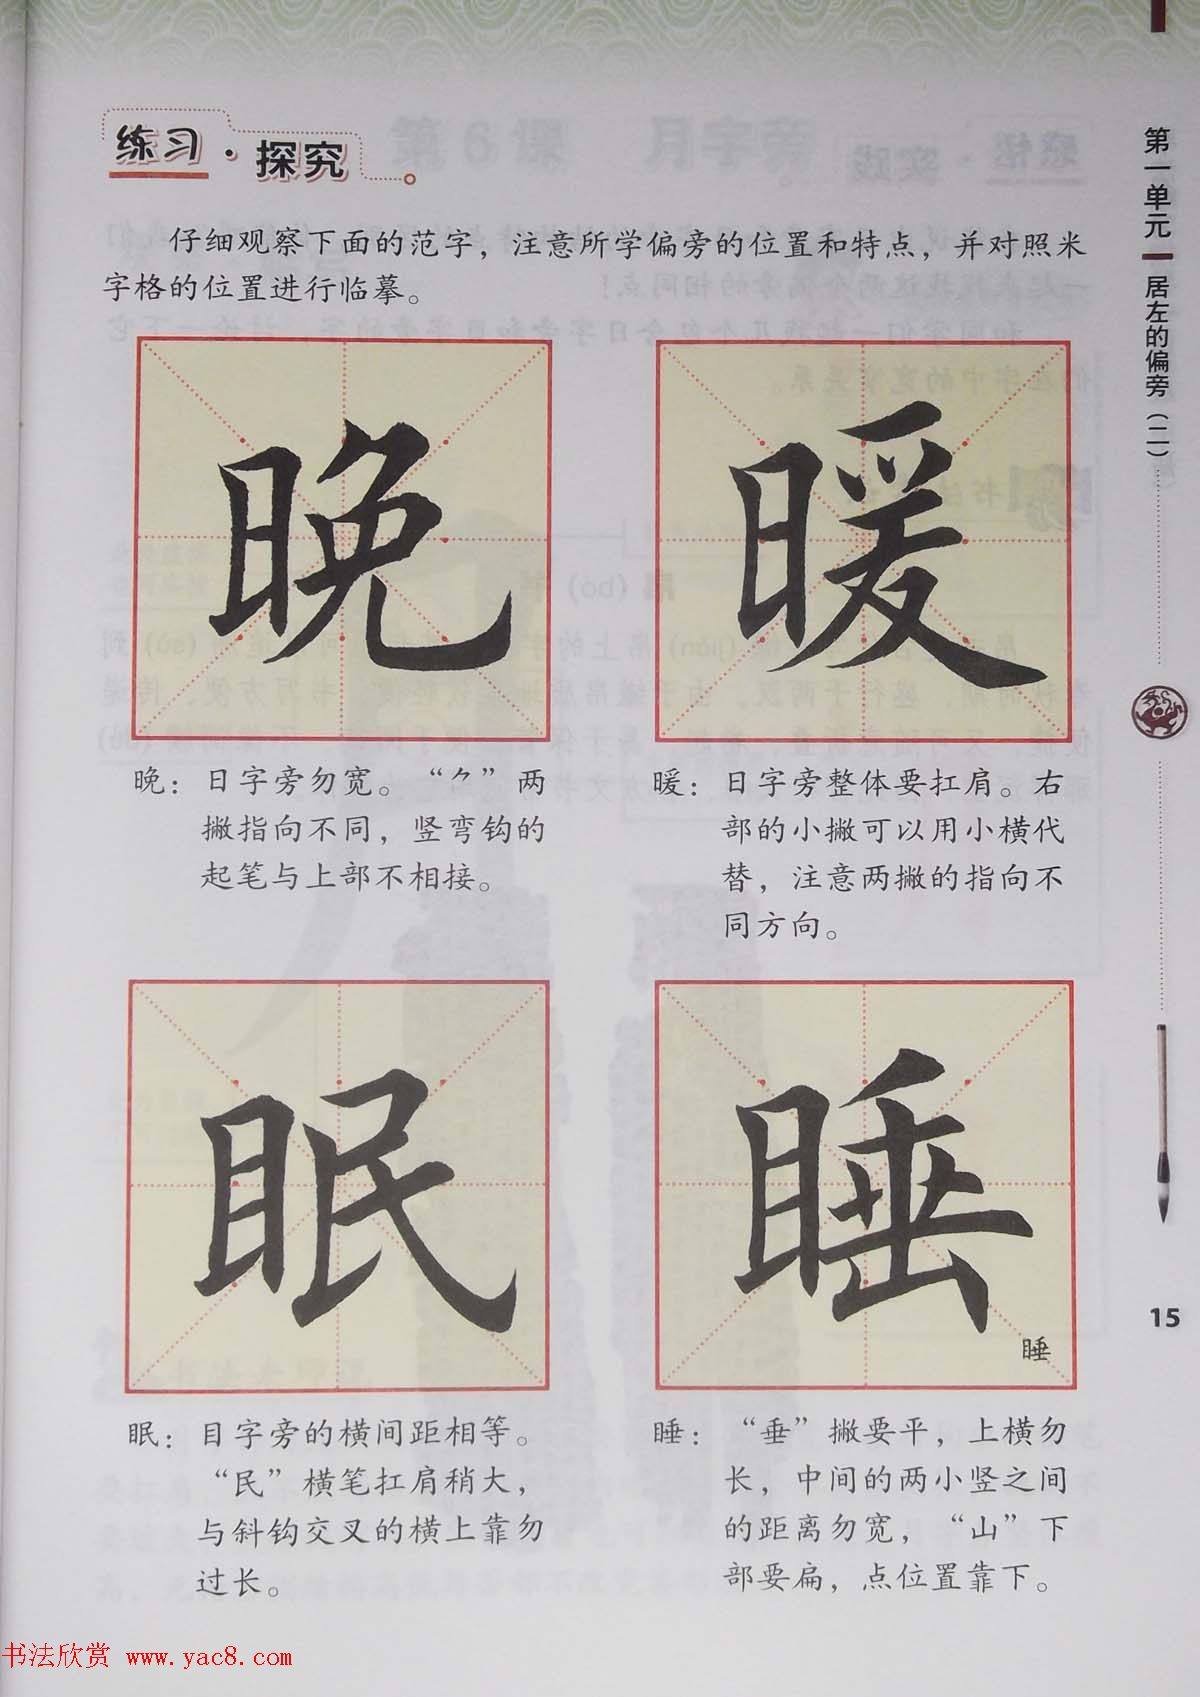 练习·探究
仔细观察下面的范字，注意所学偏旁的位置和特点，并对照米
字格的位置进行临摹。
晚
暖
晚：日字旁勿宽。“⺈”两
撇指向不同，竖弯钩的
起笔与上部不相接。
暖：日字旁整体要扛肩。右
部的小撇可以用小横代
替，注意两撇的指向不
同方向。
眠
睡
睡
眠：目字旁的横间距相等。
“民”横笔扛肩稍大，
与斜钩交叉的横上靠勿
过长。
睡：“垂”撇要平，上横勿
长，中间的两小竖之间
的距离勿宽，“山”下
部要扁，点位置靠下。
第一单元
居左的偏旁（二）
15
书法欣赏 www.yac8.com